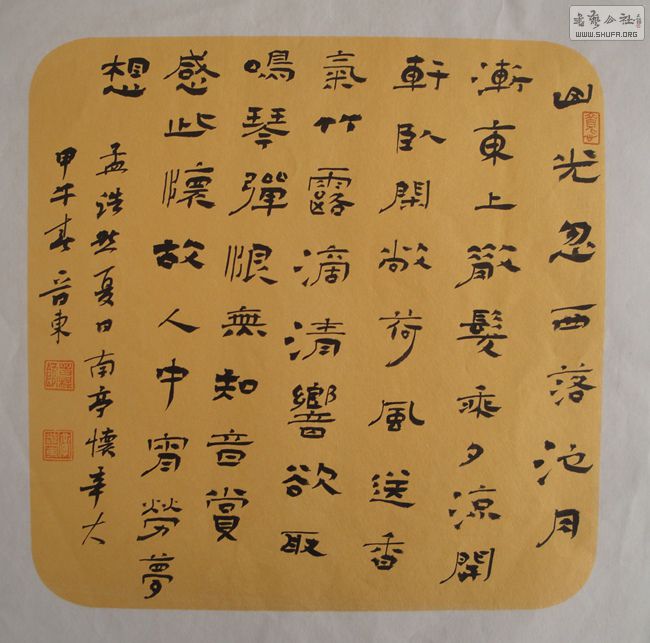 山光忽西落池月
漸東上散髮乘夕涼開
軒臥閑敞荷風送香
氣竹露滴清響欲取
鳴琴彈恨無知音賞
感此懷故人中宵勞夢
想
孟浩然夏日南亭懷辛大
甲午春晉東
書藝公社
WWW.SHUFA.ORG